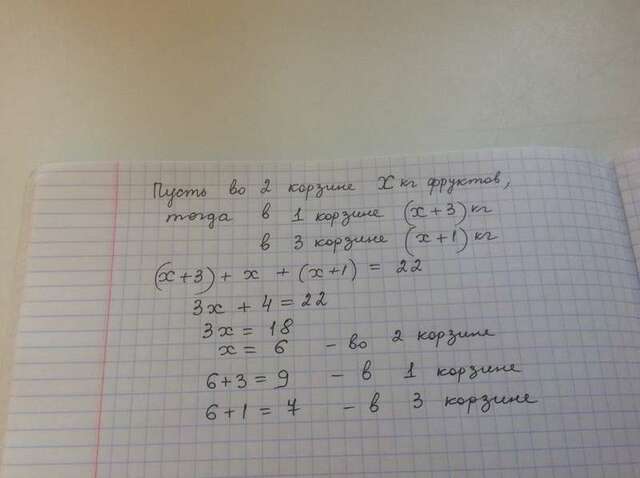 Пусть во 2 корзине X кг фруктов,
тогда в 1 корзине (x+3) кг
в 3 корзине (x+1) кг
(x+3) + x + (x+1) = 22
3x + 4 = 22
3x = 18
x = 6 - во 2 корзине
6+3 = 9 - в 1 корзине
6+1 = 7 - в 3 корзине